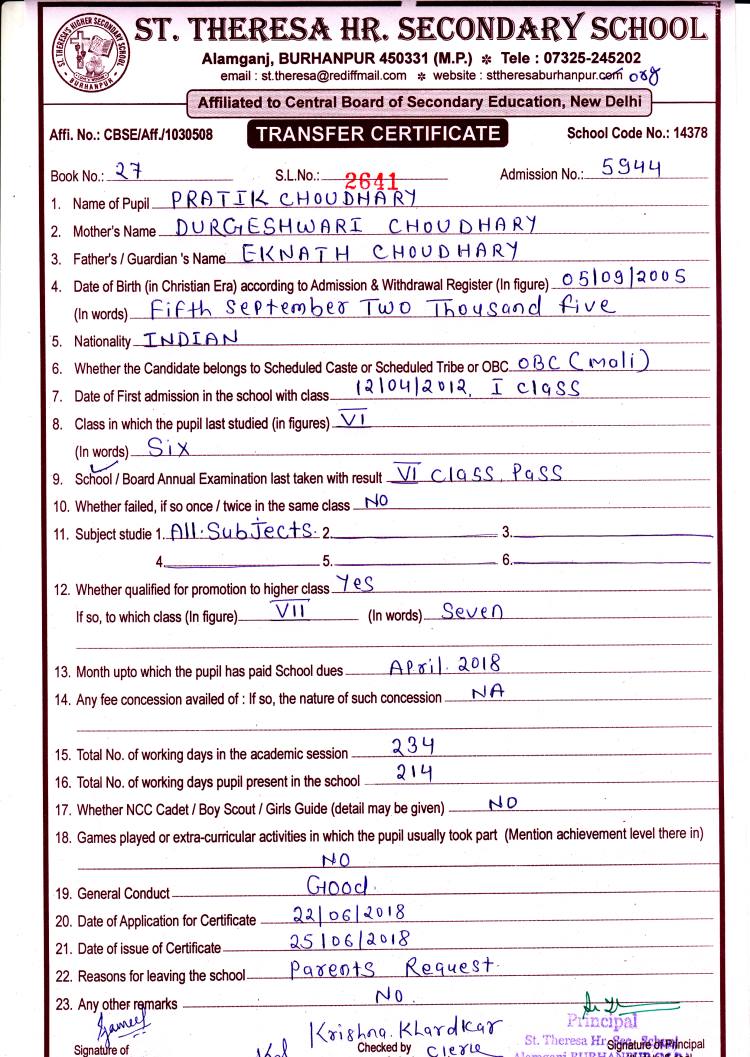 ST. THERESA'S HIGHER SECONDARY SCHOOL
BURHANPUR
ST. THERESA HR. SECONDARY SCHOOL
Alamganj, BURHANPUR 450331 (M.P.) * Tele : 07325-245202
email : st.theresa@rediffmail.com * website : sttheresaburhanpur.com org
Affiliated to Central Board of Secondary Education, New Delhi
Affi. No.: CBSE/Aff./1030508 TRANSFER CERTIFICATE School Code No.: 14378
Book No.: 27 S.L.No.: 2641 Admission No.: 5944
1. Name of Pupil PRATIK CHOUDHARY
2. Mother's Name DURGESHWARI CHOUDHARY
3. Father's / Guardian 's Name EKNATH CHOUDHARY
4. Date of Birth (in Christian Era) according to Admission & Withdrawal Register (In figure) 05/09/2005
(In words) Fifth September Two Thousand five
5. Nationality INDIAN
6. Whether the Candidate belongs to Scheduled Caste or Scheduled Tribe or OBC OBC (mali)
7. Date of First admission in the school with class 12/04/2012, I class
8. Class in which the pupil last studied (in figures) VI
(In words) Six
9. School / Board Annual Examination last taken with result VI Class, Pass
10. Whether failed, if so once / twice in the same class NO
11. Subject studie 1. All Subjects 2. 3.
4. 5. 6.
12. Whether qualified for promotion to higher class Yes
If so, to which class (In figure) VII (In words) Seven
13. Month upto which the pupil has paid School dues April. 2018
14. Any fee concession availed of : If so, the nature of such concession NA
15. Total No. of working days in the academic session 234
16. Total No. of working days pupil present in the school 214
17. Whether NCC Cadet / Boy Scout / Girls Guide (detail may be given) NO
18. Games played or extra-curricular activities in which the pupil usually took part (Mention achievement level there in)
NO
19. General Conduct Good.
20. Date of Application for Certificate 22/06/2018
21. Date of issue of Certificate 25/06/2018
22. Reasons for leaving the school Parents Request.
23. Any other remarks NO.
Krishna. Khardkar
Principal
Signature of Checked by Clerk St. Theresa Hr. Sec. School Signature of Principal
Alamganj BURHANPUR